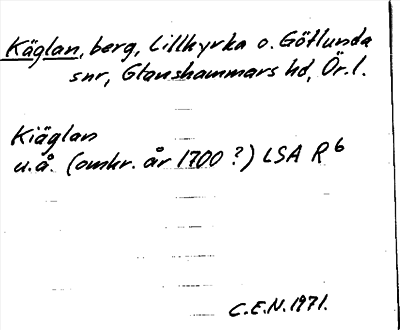 Käglan, berg, Lillkyrka o. Götlunda
snr, Glanshammars hd, Ör. l.
Kiäglan
u.å. (omkr. år 1700?) LSA R6
C.E.N. 1971.